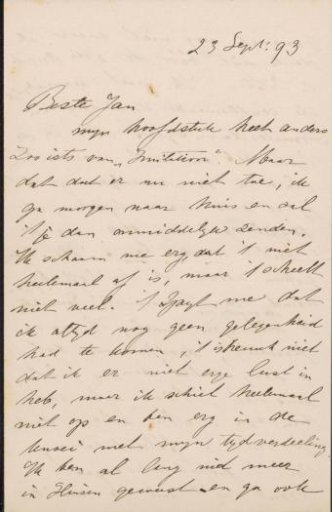 23 Sept: 93
Beste Jan
mijn hoofdstuk heet anders
Zoo iets van „Imitation". Maar
dat doet er nu niet toe, ik
ga morgen naar huis en zal
't je dan onmiddelijk zenden.
Ik schaam me erg dat 't niet
heelemaal af is, maar 't scheelt
niet veel. 't Spijt me dat
ik altijd nog geen gelegenheid
had te komen, 't is niet
dat ik er niet erge lust in
heb, maar ik schiet heelemaal
niet op en ben erg in de
met mijn tijdverdeeling
Ik ben al lang niet meer
in Huizen geweest en ga ook